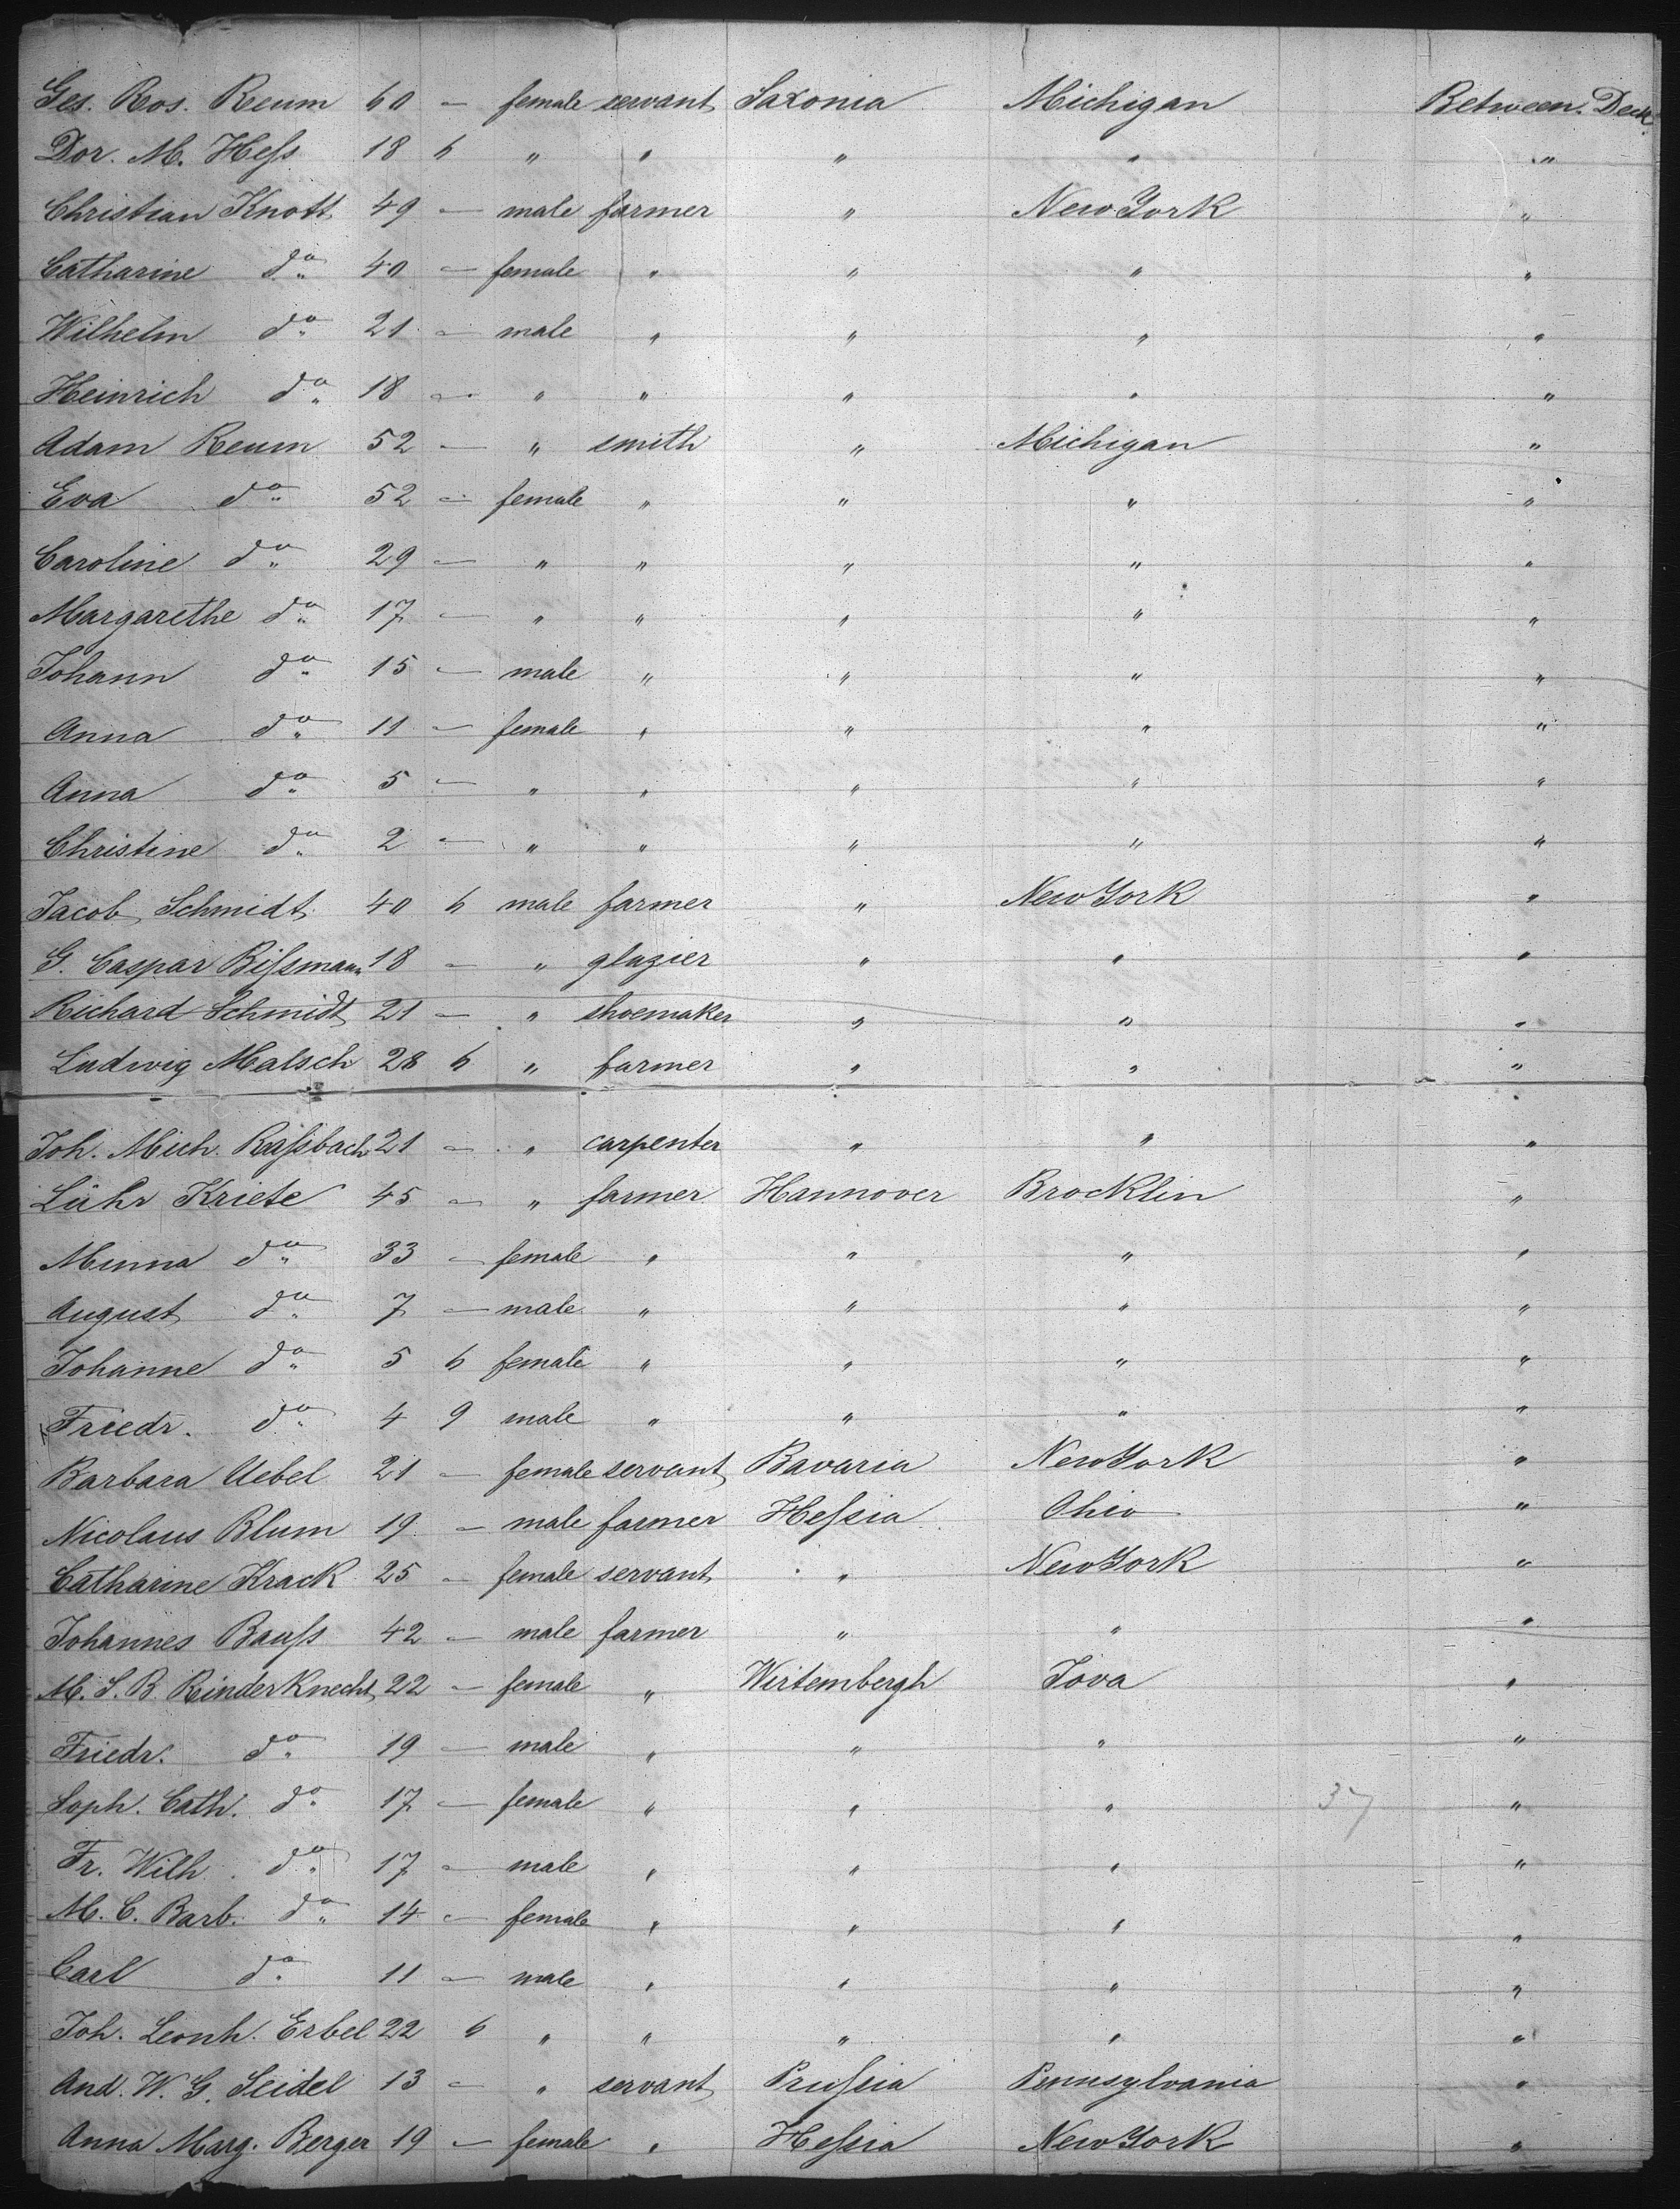 Ges. Ros. Reum 60 — female servant Saxonia Michigan Between Deck
Dor. M. Heſs 18 6 " " " " "
Christian Knott 49 — male farmer " New York "
Catharine do 40 — female " " " "
Wilhelm do 21 — male " " " "
Heinrich do 18 — " " " " "
Adam Reum 52 — " smith " Michigan "
Eva do 52 — female " " " "
Caroline do 29 — " " " " "
Margarethe do 17 — " " " " "
Johann do 15 — male " " " "
Anna do 11 — female " " " "
Anna do 5 — " " " " "
Christine do 2 — " " " " "
Jacob Schmidt 40 6 male farmer " New York "
G. Caspar Biſsmann 18 — " glazier " " "
Richard Schmidt 21 — " shoemaker " " "
Ludwig Malsch 28 6 " farmer " " "
Joh. Mich. Raſsbach 21 — " carpenter " " "
Lühr Kriete 45 — " farmer Hannover Brocklin "
Minna do 33 — female " " " "
August do 7 — male " " " "
Johanne do 5 6 female " " " "
Friedr. do 4 9 male " " " "
Barbara Uebel 21 — female servant Bavaria New York "
Nicolaus Blum 19 — male farmer Heſsia Ohio "
Catharine Krack 25 — female servant " New York "
Johannes Bauſs 42 — male farmer " " "
M. S. B. Rinderknecht 22 — female " Wirtembergh Iova "
Friedr. do 19 — male " " " "
Soph. Cath. do 17 — female " " " 37 "
Fr. Wilh. do 17 — male " " " "
M. C. Barb. do 14 — female " " " "
Carl do 11 — male " " " "
Joh. Leonh. Erbel 22 6 " " " " "
And. W. G. Seidel 13 — " servant Pruſsia Pennsylvania "
Anna Marg. Berger 19 — female " Heſsia New York "